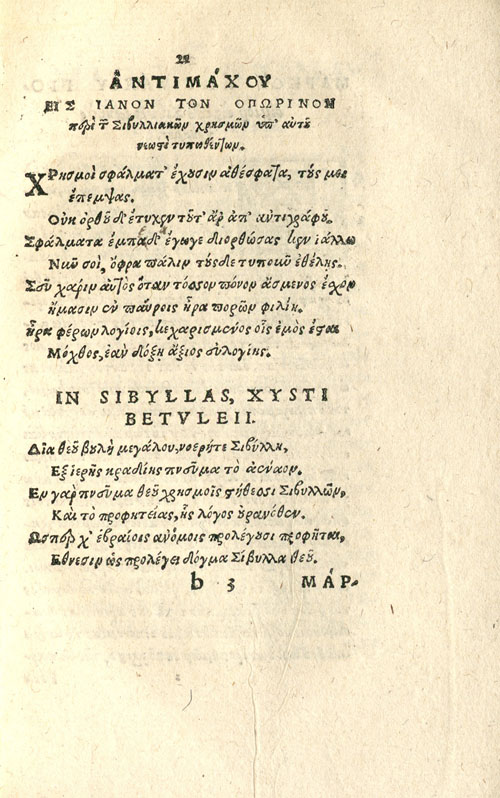 21
ἈΝΤΙΜΆΧΟΥ
ΕΙΣ ΙΑΝΟΝ ΤΟΝ ΟΠΩΡΙΝΟΝ
περὶ τ Σιβυλλιακῶν χρησμῶν ὑπ' αὐτῦ
νεωςὶ τυπωθέντων.
ΧΡησμοὶ σφάλματ' ἔχυσιν ἀθέσφατα, τύς μοι
ἔπεμψας.
Οὐκ ὀρθῦ δ' ἔτυχον τῦτ' ἂρ ἀπ' ἀντιγράφυ.
Σφάλματα ἔμπα δ' ἔγωγε διορθώσας ἰάλλω
Νιῶ σοὶ, ὄφρα πάλιν τύςδε τυποιῶ ἐθέλῃς.
Σὴν χάριν αὐτὸς ὅταν τόσσον πόνον ἄσμενος ἔσχον
ἤμασιν ἐν παύροις ἦρα πορῶν φιλίῃ.
ἦρα φέρων λογίοις, κεχαρισμένος οἷς ἐμὸς ἔσαι
Μόχθος, ἐὰν δόξῃ ἄξιος εὐλογίης.
IN SIBYLLAS, XYSTI
BETVLEII.
Δῖα θεῦ βυλὴ μεγάλου, νοερή τε Σιβύλλη,
Ἐξ ἱερῆς κραδίης πνεῦμα τὸ ἀέναον.
Εν γαρ πνεῦμα θεῦ χρησμοῖς ςήθεσσι Σιβυλλῶν,
Καὶ τὸ προφητείας, ἧς λόγος ὐρανόθεν.
Ωσπερ χ' ἑβραίοις ἀνόμοις προλέγυσι προφῆται,
Εθνεσιν ὡς προλέγει δόγμα Σίβυλλα θεῦ.
b 3 ΜΆΡ-